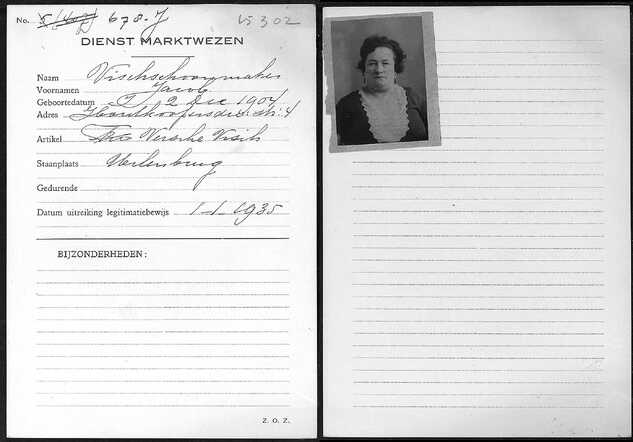 No. 678-J 15302
DIENST MARKTWEZEN
Naam Vischschoonmaker
Voornamen Jacob
Geboortedatum 2 Dec 1904
Adres Houtkoopersdw. str. 4
Artikel Versche Visch
Staanplaats Uilenburg
Gedurende
Datum uitreiking legitimatiebewijs 1-1-1935
BIJZONDERHEDEN:
Z. O. Z.